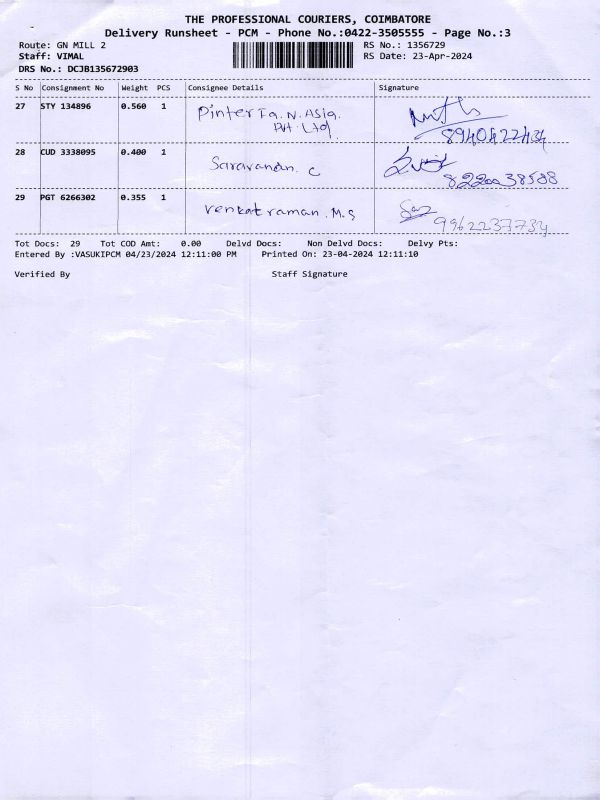 THE PROFESSIONAL COURIERS, COIMBATORE
Delivery Runsheet - PCM - Phone No.:0422-3505555 - Page No.:3
Route: GN MILL 2 RS No.: 1356729
Staff: VIMAL RS Date: 23-Apr-2024
DRS No.: DCJB135672903
S No Consignment No Weight PCS Consignee Details Signature
27 STY 134896 0.560 1 Pinter Fa.N.Asia.
Pvt. Ltd
28 CUD 3338095 0.400 1 Saravanan. C
29 PGT 6266302 0.355 1 Venkatraman. M.S
9962237734
Tot Docs: 29 Tot COD Amt: 0.00 Delvd Docs: Non Delvd Docs: Delvy Pts:
Entered By :VASUKIPCM 04/23/2024 12:11:00 PM Printed On: 23-04-2024 12:11:10
Verified By Staff Signature